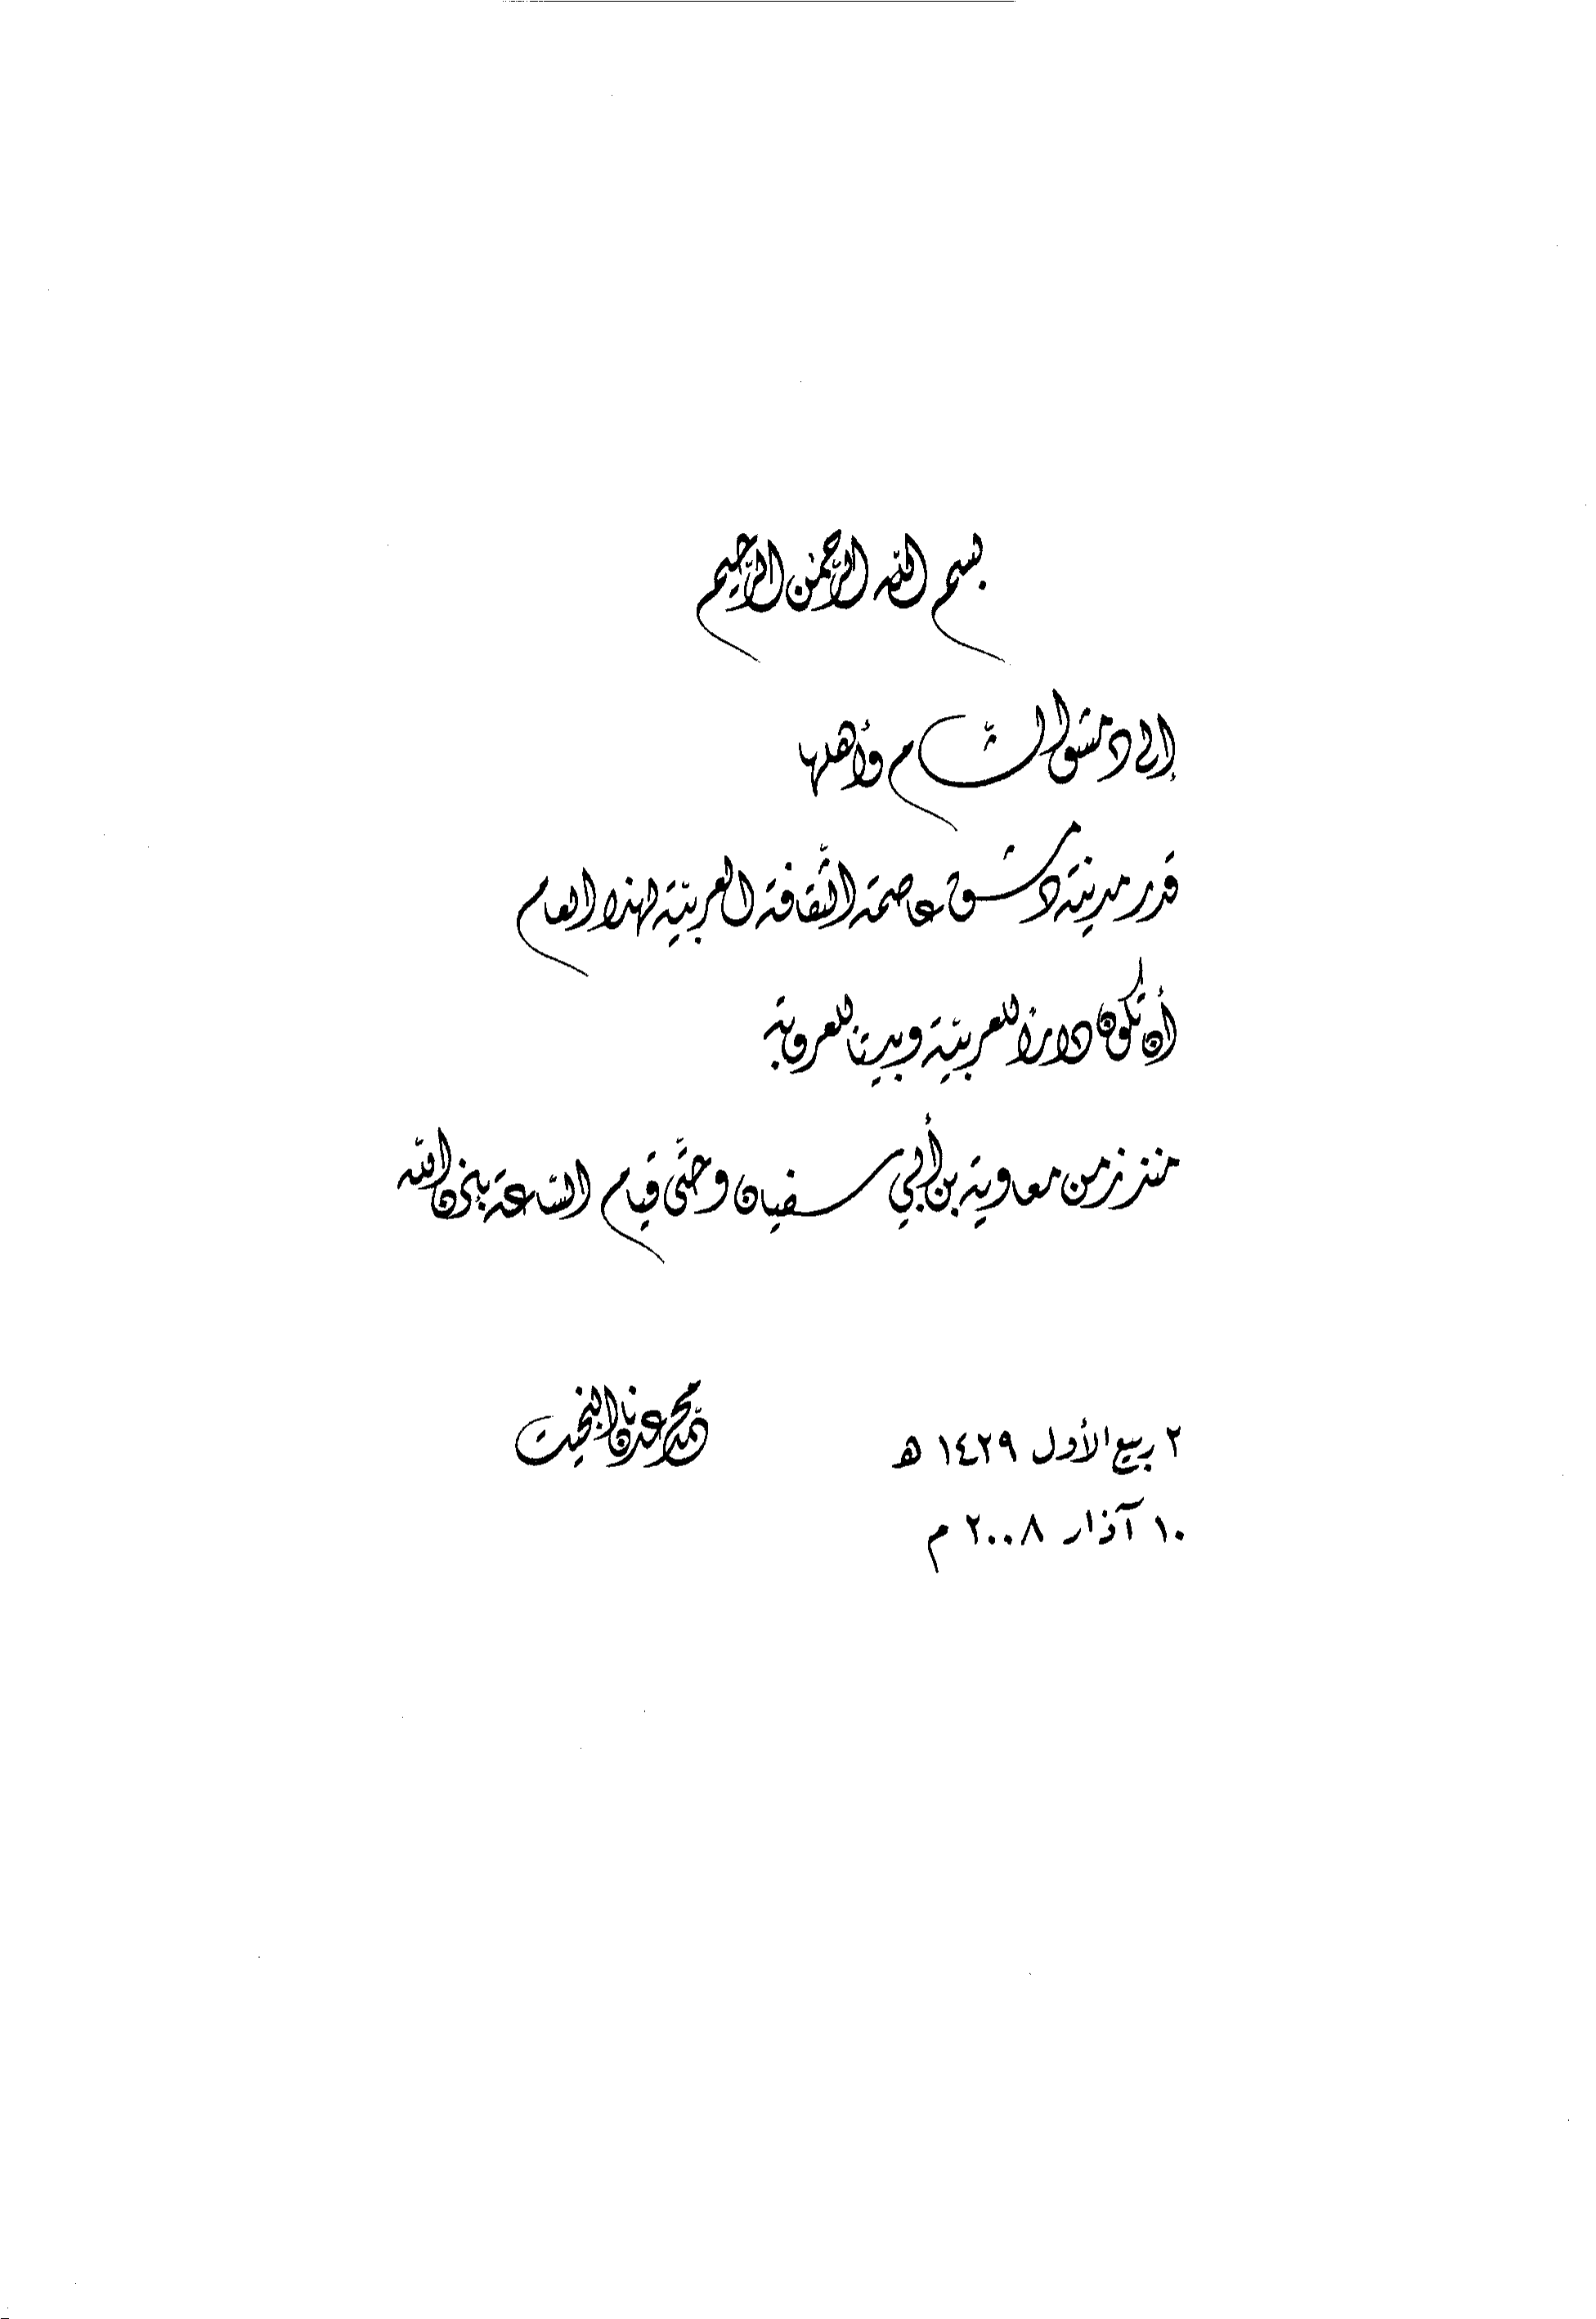 بسم الله الرحمن الرحيم
إلى دمشق الشّام وأهلها
قدر مدينة دمشق عاصمة الثّقافة العربيّة لهذا العام
أن تكون دارًا للعربيّة وبيتًا للعروبة
منذ زمن معاوية بن أبي سفيان وحتّى قيام السّاعة بإذن الله
محمّد عدنان البخيت
٢ ربيع الأول ١٤٢٩ هـ
١٠ آذار ٢٠٠٨ م